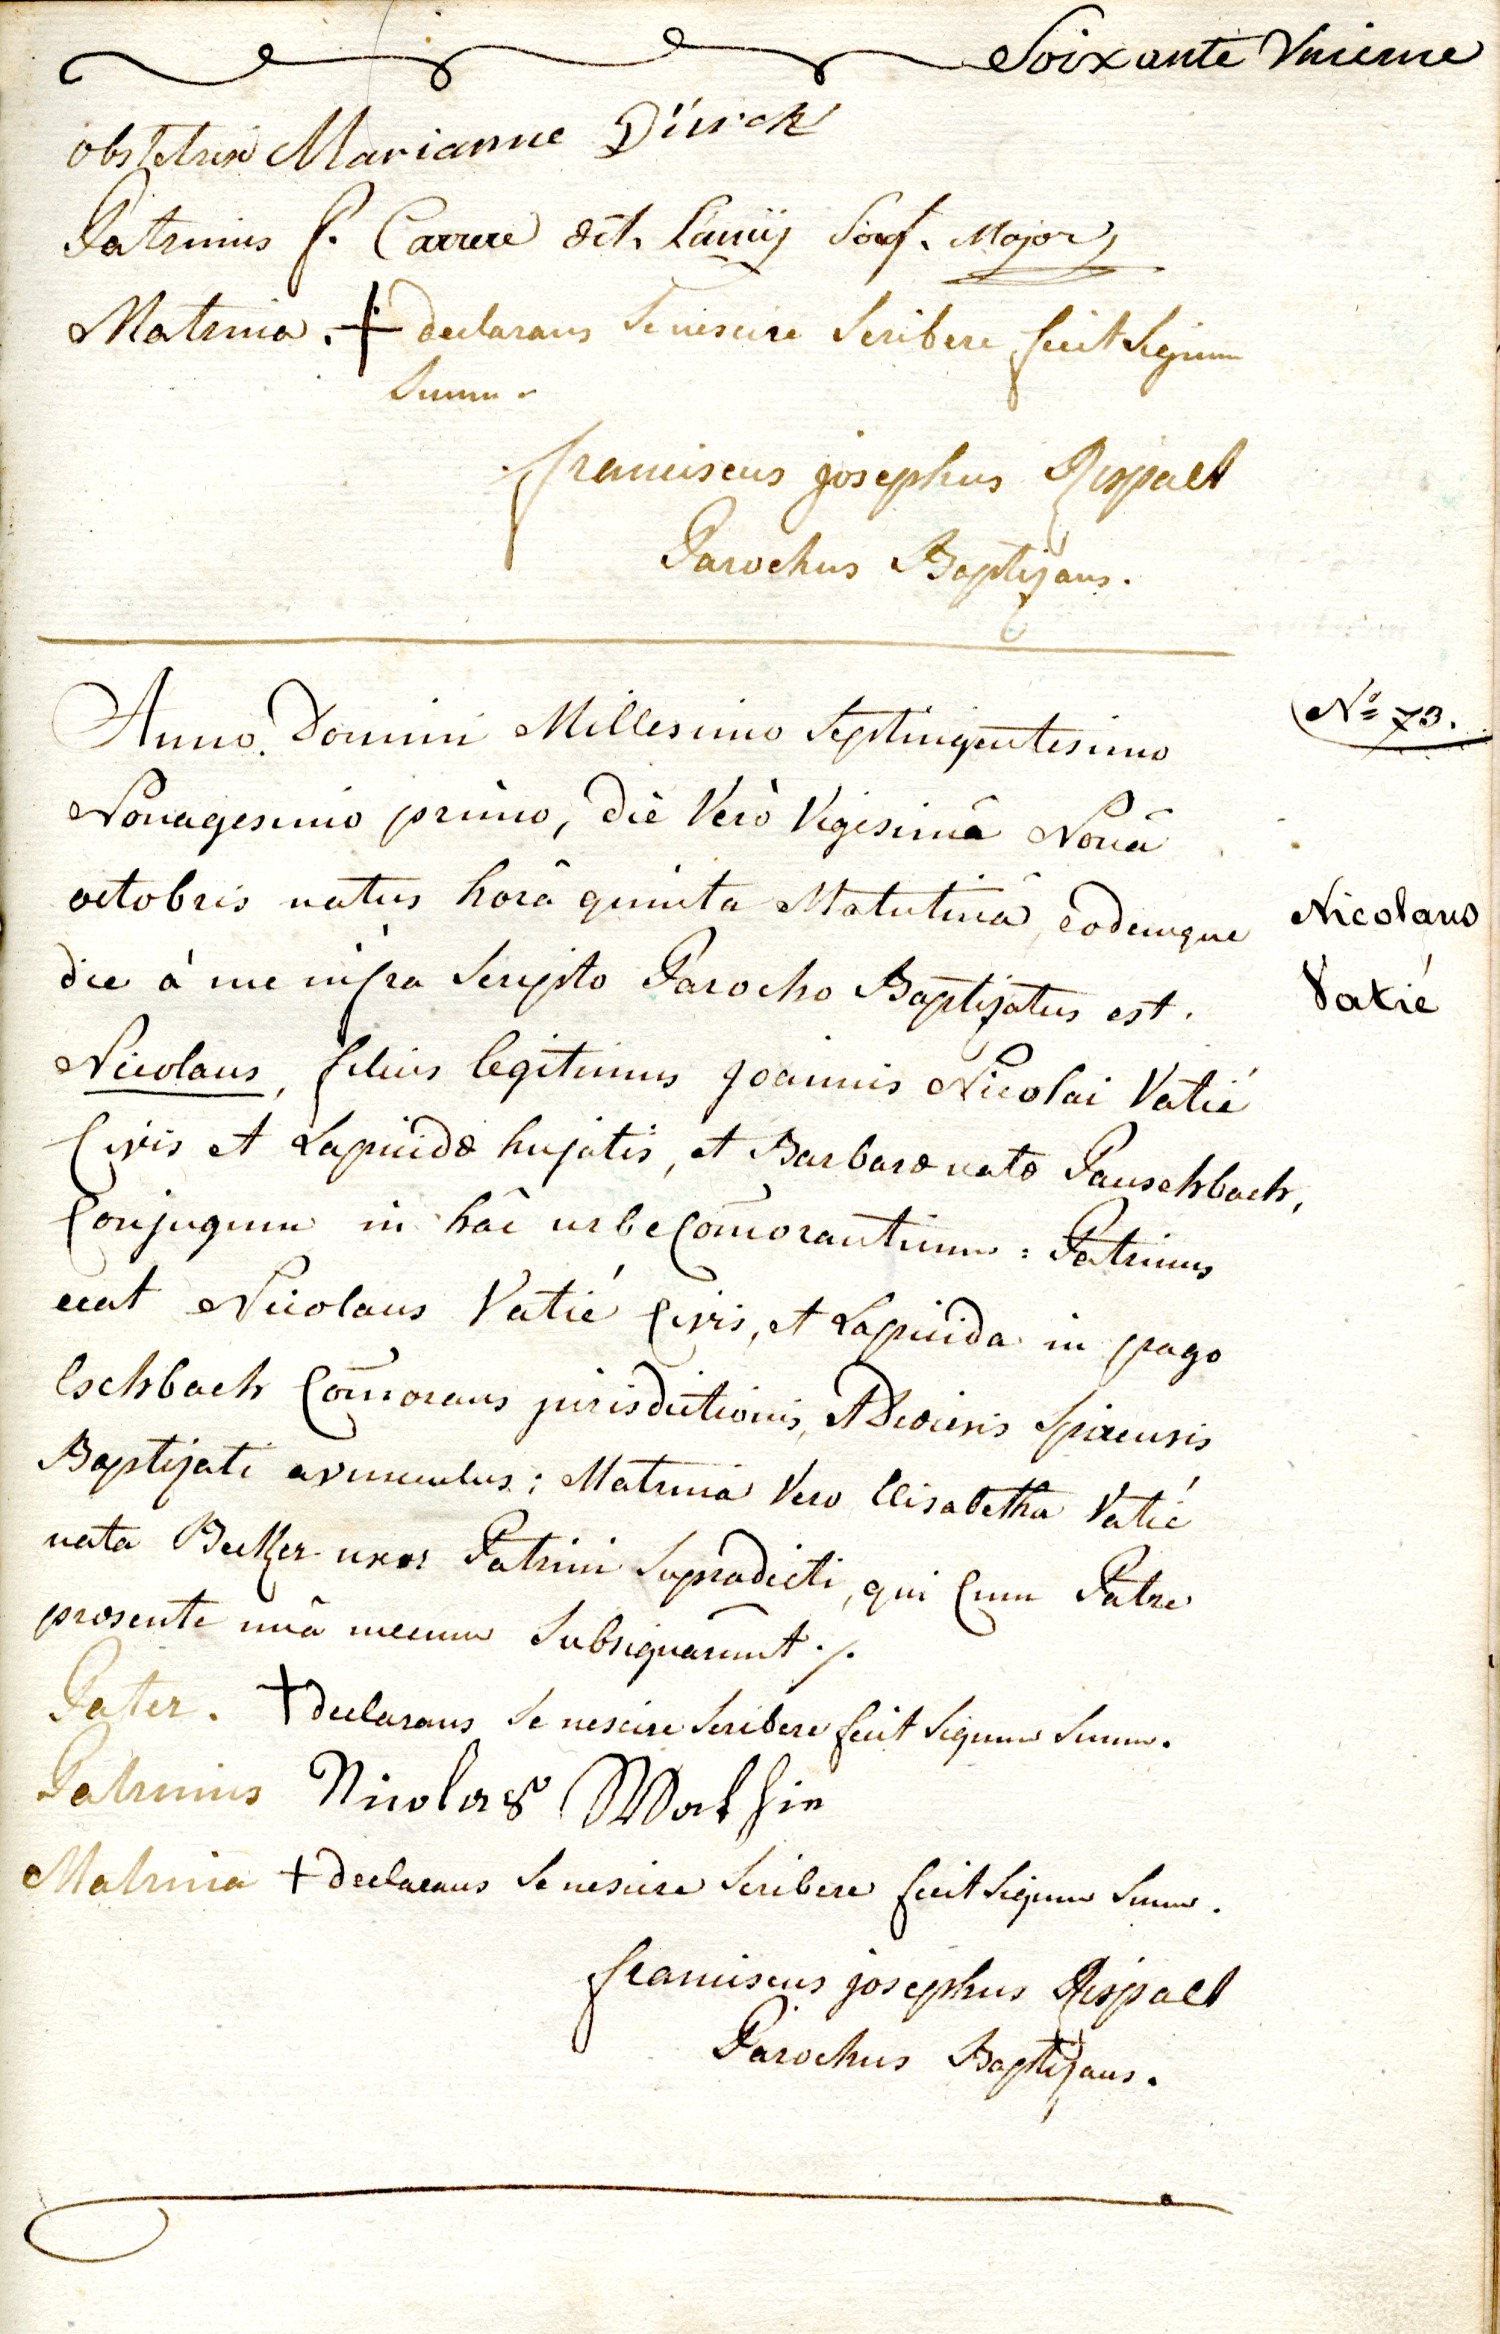 Soixante Unieme
obstetrix Marianne Dürck
Patrinus P. Carrere dit. Major
Matrina. + declarans se nescire scribere fecit signum
suum.
franciscus josephus Rispalt
Parochus Baptizans.
Anno Domini Millesimo Septingentesimo
Nº 73.
Nonagesimo primo, die Verò Vigesimâ Nonâ
octobris natus horâ quinta Matutinâ, eodemque
Nicolaus
die à me infra scripto Parocho Baptizatus est.
Vatié
Nicolaus, filius legitimus joannis Nicolai Vatié
Civis et Lapicidæ hujatis, et Barbaræ natæ Pauschbach,
Conjugum in hâc urbe Com̄orantium: Patrinus
erat Nicolaus Vatié Civis, et Lapicida in pago
Eschbach Com̄orans jurisdictionis, et Diœcesis Spirensis
Baptizati avunculus; Matrina Vero Elisabetha Vatié
nata Becker uxor Patrini supradicti, qui Cum Patre
præsente unâ mecum subsignarunt ./.
Pater. + declarans se nescire scribere fecit signum suum.
Patrinus Nicolas Wathie
Matrina + declarans se nescire scribere fecit signum suum.
franciscus josephus Rispalt
Parochus Baptizans.